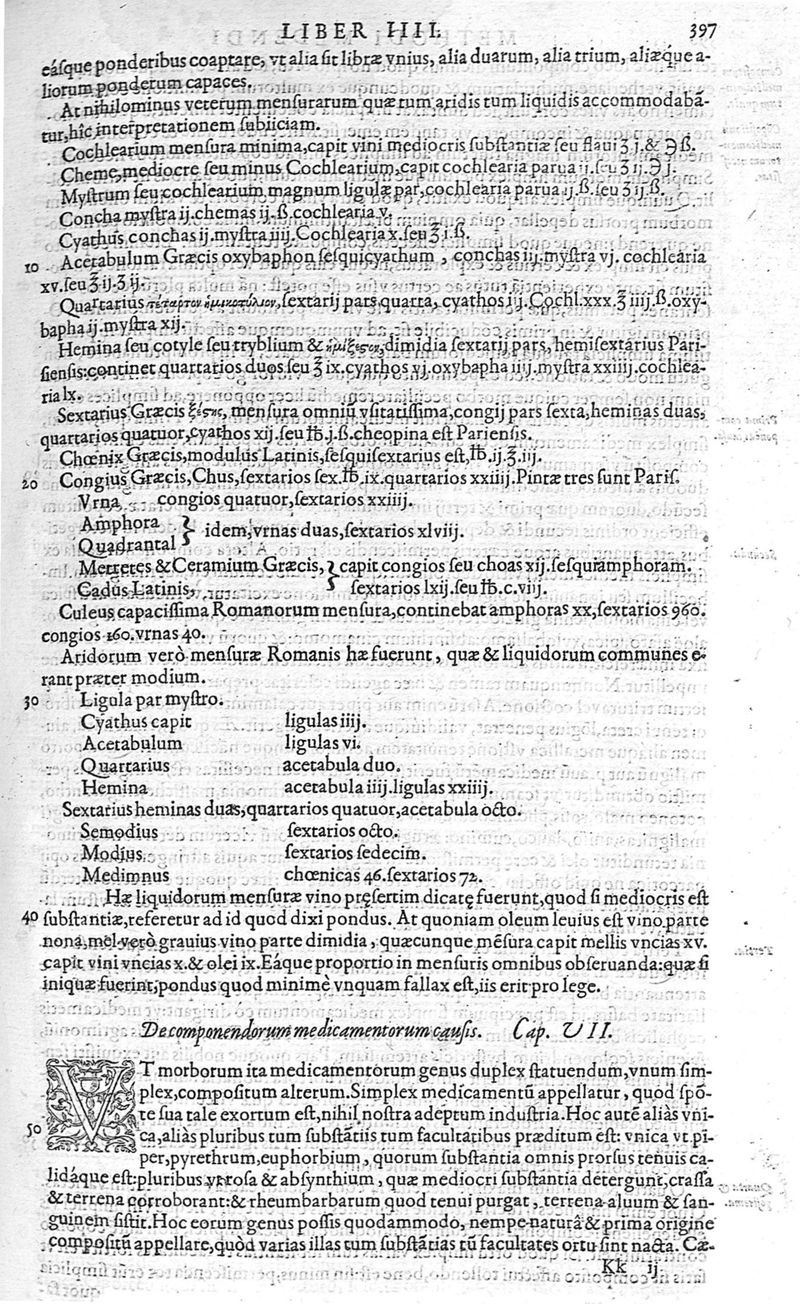 LIBER IIII. 397
eásque ponderibus coaptare, vt alia sit libræ vnius, alia duarum, alia trium, aliæque a-
liorum ponderum capaces.
At nihilominus veterum mensurarum quæ tum aridis tum liquidis accommodabã-
tur, hîc interpretationem subiiciam.
Cochlearium mensura minima, capit vini mediocris substantiæ seu flaui ʒ j. & ℈ ß.
Cheme, mediocre seu minus Cochlearium, capit cochlearia parua ij. seu ʒ ij. ℈ j.
Mystrum seu cochlearium magnum ligulæ par, cochlearia parua ij. ß. seu ʒ iij. ß.
Concha mystra ij. chemas ij. ß. cochlearia v.
Cyathus conchas ij. mystra iiij. Cochlearia x. seu ℥ i. ß.
10 Acetabulum Græcis oxybaphon sesquicyathum, conchas iij. mystra vj. cochlearia
xv. seu ℥ ij. ʒ ij.
Quartarius τέταρτον ἡμικοτύλιον, sextarij pars quarta, cyathos iij. Cochl. xxx. ℥ iiij. ß. oxy-
bapha ij. mystra xij.
Hemina seu cotyle seu tryblium & ἡμίξεςον, dimidia sextarij pars, hemisextarius Pari-
siensis: continet quartarios duos seu ℥ ix. cyathos vj. oxybapha iiij. mystra xxiiij. cochlea-
ria lx.
Sextarius Græcis ξέςης, mensura omniũ vsitatissima, congij pars sexta, heminas duas,
quartarios quatuor, cyathos xij. seu ℔. j. ß. cheopina est Pariensis.
Chœnix Græcis, modulus Latinis, sesquisextarius est, ℔. ij. ℥. iij.
20 Congius Græcis, Chus, sextarios sex. ℔. ix. quartarios xxiiij. Pintæ tres sunt Paris.
Vrna congios quatuor, sextarios xxiiij.
Amphora
Quadrantal } idem, vrnas duas, sextarios xlviij.
Metretes & Ceramium Græcis, } capit congios seu choas xij. sesquiamphoram.
Cadus Latinis, sextarios lxij. seu ℔. c. viij.
Culeus capacissima Romanorum mensura, continebat amphoras xx, sextarios 960.
congios 160. vrnas 40.
Aridorum verò mensuræ Romanis hæ fuerunt, quæ & liquidorum communes e-
rant præter modium.
30 Ligula par mystro.
Cyathus capit ligulas iiij.
Acetabulum ligulas vi.
Quartarius acetabula duo.
Hemina acetabula iiij. ligulas xxiiij.
Sextarius heminas duas, quartarios quatuor, acetabula octo.
Semodius sextarios octo.
Modius sextarios sedecim.
Medimnus chœnicas 46. sextarios 72.
Hæ liquidorum mensuræ vino pręsertim dicatę fuerunt, quod si mediocris est
40 substantiæ, referetur ad id quod dixi pondus. At quoniam oleum leuius est vino parte
nona, mel verò grauius vino parte dimidia, quæcunque mẽsura capit mellis vncias xv.
capit vini vncias x. & olei ix. Eáque proportio in mensuris omnibus obseruanda: quæ si
iniquæ fuerint, pondus quod minimè vnquam fallax est, iis erit pro lege.
De componendorum medicamentorum causis. Cap. VII.
VT morborum ita medicamentorum genus duplex statuendum, vnum sim-
plex, compositum alterum. Simplex medicamentũ appellatur, quod spõ-
te sua tale exortum est, nihil nostra adeptum industria. Hoc autẽ aliàs vni-
50 ca, aliàs pluribus tum substãtiis tum facultatibus præditum est: vnica vt pi-
per, pyrethrum, euphorbium, quorum substantia omnis prorsus tenuis ca-
lidáque est: pluribus vt rosa & absynthium, quæ mediocri substantia detergunt, crassa
& terrena corroborant: & rheumbarbarum quod tenui purgat, terrena aluum & san-
guinem sistit. Hoc eorum genus possis quodammodo, nempe natura & prima origine
compositũ appellare, quòd varias illas tum substãtias tũ facultates ortu sint nacta. Cæ-
Kk ij.